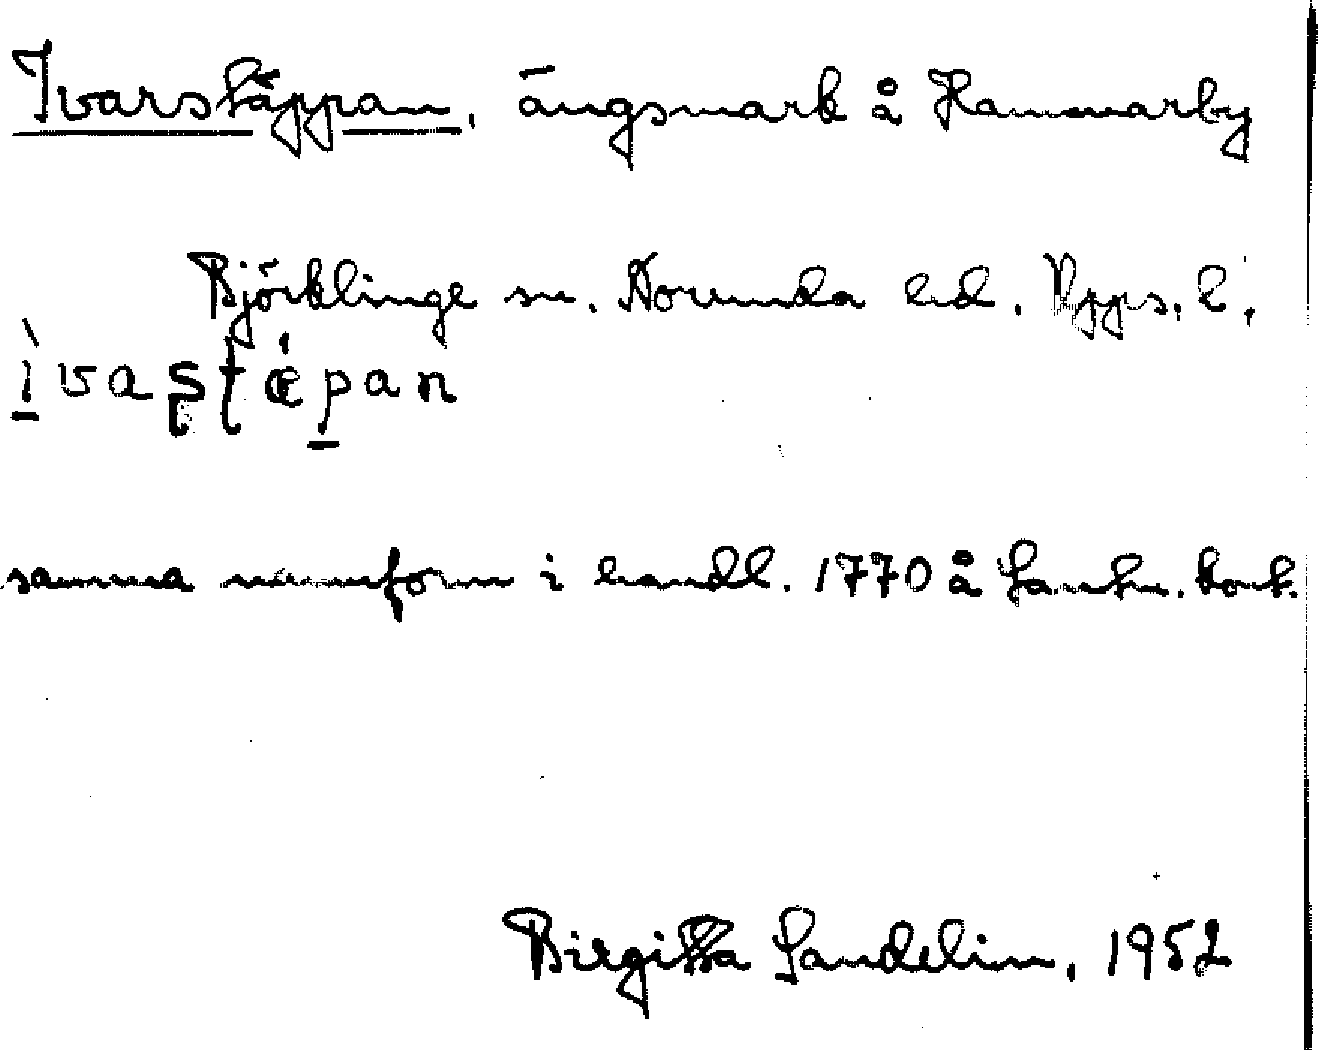 Ivarstäppan, ängsmark å Hammarby
Björklinge sn. Norunda hd. Upps. l.
ìvaʂʈæ̀pan
samma namnform i handl. 1770 å Lantm. kont.
Birgitta Sandelin, 1952